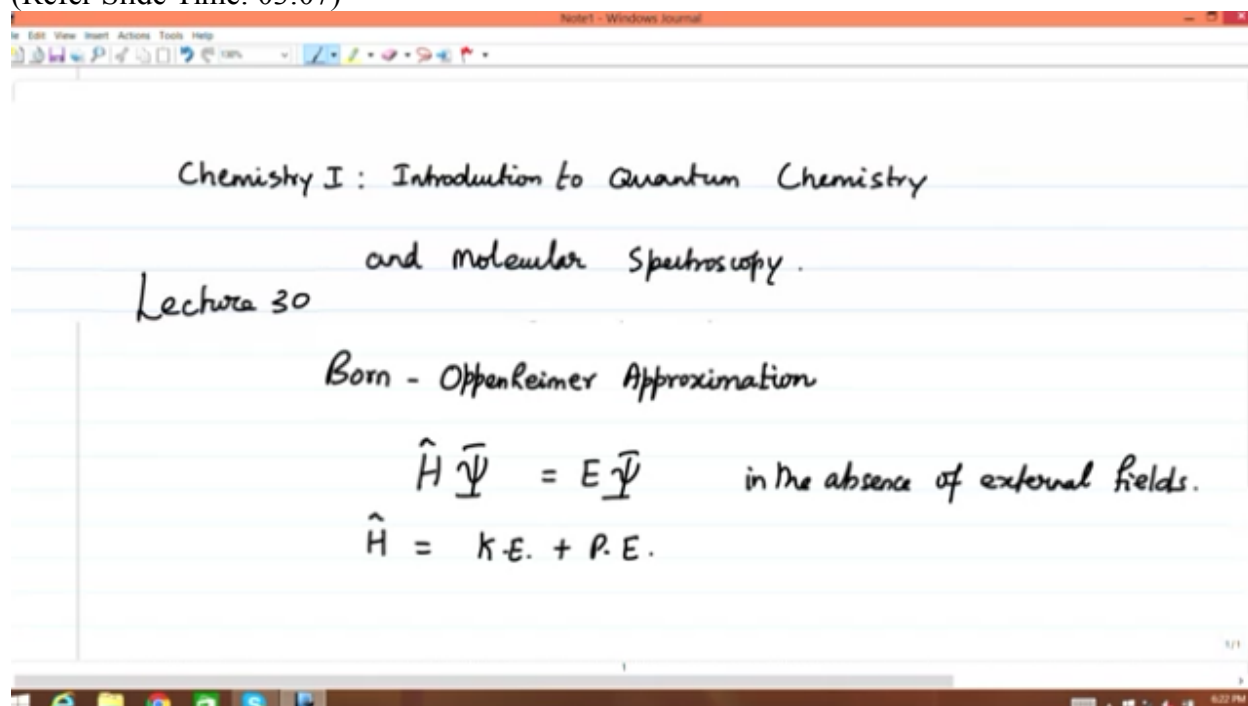 (Refer Slide Time: 03:07)
Note1 - Windows Journal
File Edit View Insert Actions Tools Help
Chemistry I : Introduction to Quantum Chemistry
and Molecular Spectroscopy.
Lecture 30
Born - Oppenheimer Approximation
Ĥ Ψ = E Ψ in the absence of external fields.
Ĥ = K.E. + P.E.
1/1
1
6:22 PM